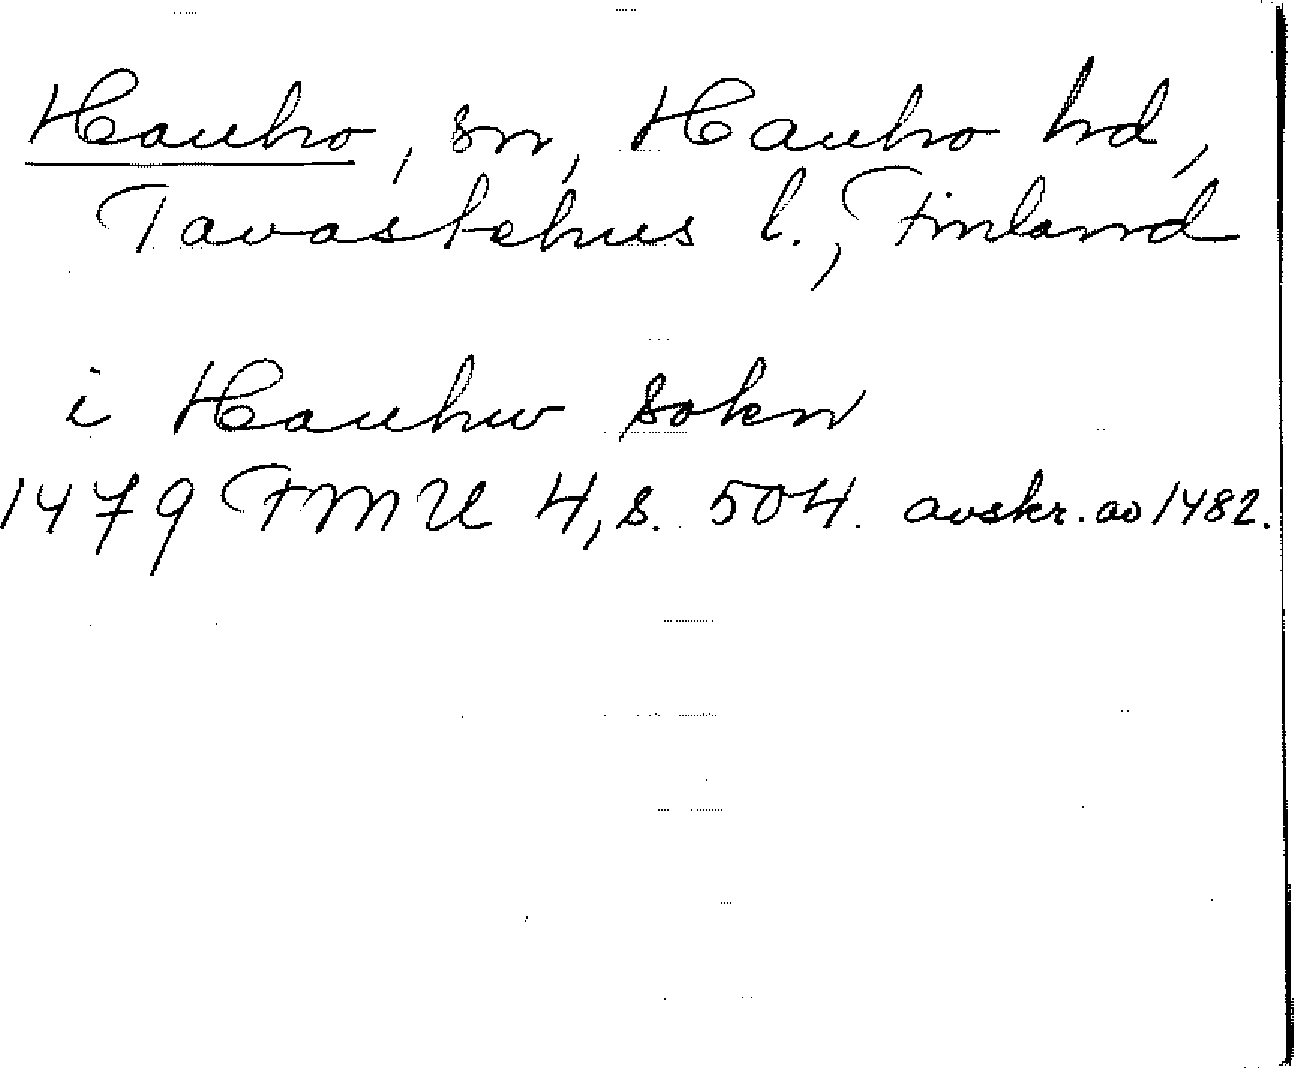 Hauho, sn, Hauho hd,
Tavastehus l., Finland
i Hauhw sokn
1479 FMU 4, s. 504. avskr. av 1482.